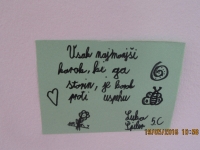 Vsak najmanjši
korak, ki ga
storim, je korak
proti uspehu
Luka
5.C
18/05/2016 10: